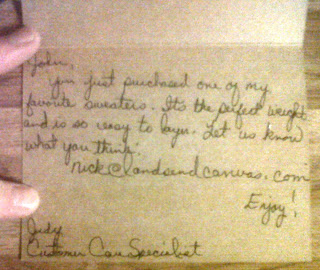 John,
You just purchased one of my
favorite sweaters. It's the perfect weight
and is so easy to layer. Let us know
what you think.
nick@landsendcanvas.com
Enjoy!
Judy
Customer Care Specialist